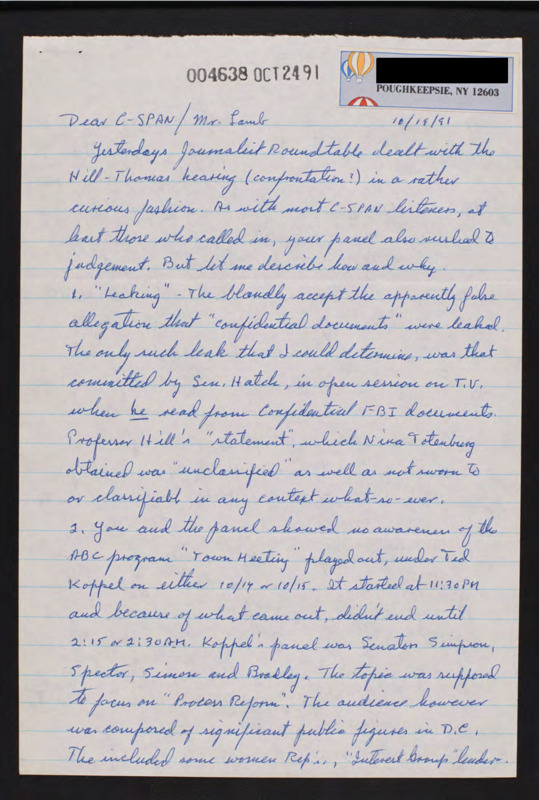 004638 OCT 24 91
POUGHKEEPSIE, NY 12603
Dear C-SPAN/Mr. Lamb 10/19/91
Yesterdays Journalist Roundtable dealt with the
Hill-Thomas hearing (confrontation!) in a rather
curious fashion. As with most C-SPAN listeners, at
least those who called in, your panel also rushed to
judgement. But let me describe how and why.
1. "Leaking" - The blandly accept the apparently false
allegation that "confidential documents" were leaked.
The only such leak that I could determine, was that
committed by Sen. Hatch, in open session on T.V.
when he read from Confidential FBI documents.
Professor Hill's "statement", which Nina Totenburg
obtained was "unclassified" as well as not sworn to
or classifiable in any context what-so-ever.
2. You and the panel showed no awareness of the
ABC program "Town Meeting" played out, under Ted
Koppel on either 10/14 or 10/15. It started at 11:30 PM
and because of what came out, didn't end until
2:15 or 2:30 AM. Koppel's panel was Senators Simpson,
Spector, Simon and Bradley. The topic was supposed
to focus on "Process Reform". The audience however
was composed of significant public figures in D.C.
The included some women Rep's., "Interest Group" leader.